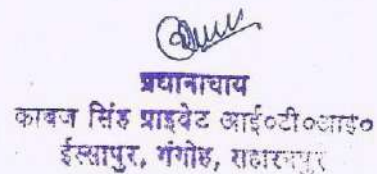 प्रधानाचाय
काबज सिंह प्राइवेट आई०टी०आई०
ईस्सापुर, गंगोह, सहारनपुर